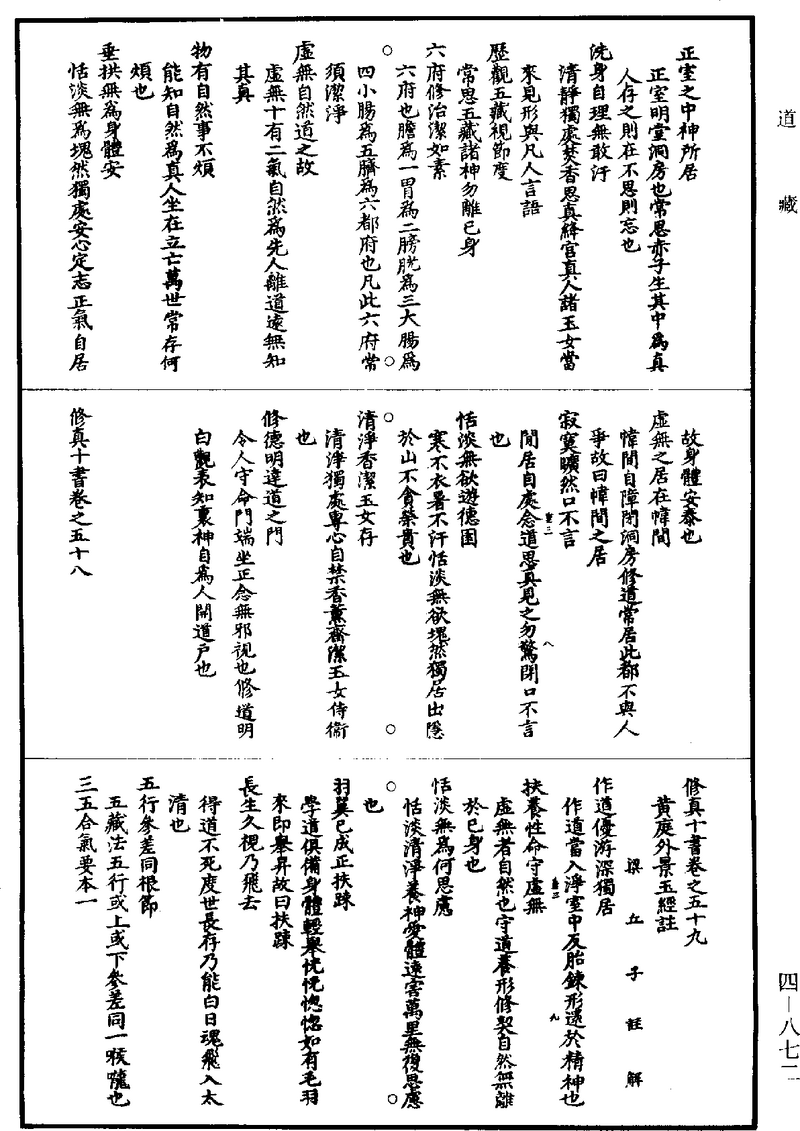 道藏
正室之中神所居
正室明堂洞房也常思赤子生其中爲真
人存之則在不思則忘也
洗身自理無敢汙
清靜獨處焚香思真絳宮真人諸玉女當
來見形與凡人言語
歷觀五藏視節度
常思五藏諸神勿離己身
六府修治潔如素
六府也膽爲一胃爲二膀胱爲三大腸爲
四小腸爲五臍爲六都府也凡此六府常
須潔淨
虛無自然道之故
虛無十有二氣自然爲先人離道遠無知
其真
物有自然事不煩
能知自然爲真人坐在立亡萬世常存何
煩也
垂拱無爲身體安
恬淡無爲塊然獨處安心定志正氣自居
故身體安泰也
虛無之居在幃間
幃間自障閉洞房修道常居此都不與人
爭故曰幃間之居
寂寞曠然口不言
閒居自處念道思真見之勿驚閉口不言
也
恬淡無欲遊德園
寒不衣暑不汗恬淡無欲塊然獨居出隱
於山不貪榮貴也
清淨香潔玉女存
清淨獨處專心自禁香薰齋潔玉女侍衞
也
修德明達道之門
令人守命門端坐正念無邪視也修道明
白觀表知裏神自爲人開道戶也
修真十書卷之五十八
修真十書卷之五十九
黃庭外景玉經註
梁丘子註解
作道優游深獨居
作道當入淨室中反胎鍊形還於精神也
扶養性命守虛無
虛無者自然也守道養形修契自然無離
於己身也
恬淡無爲何思慮
恬淡清淨養神愛體遠害萬里無復思慮
也
羽翼已成正扶踈
學道俱備身體輕舉恍恍惚惚如有毛羽
來即舉昇故曰扶踈
長生久視乃飛去
得道不死度世長存乃能白日魂飛入太
清也
五行參差同根節
五藏法五行或上或下參差同一喉嚨也
三五合氣要本一
四—八七二